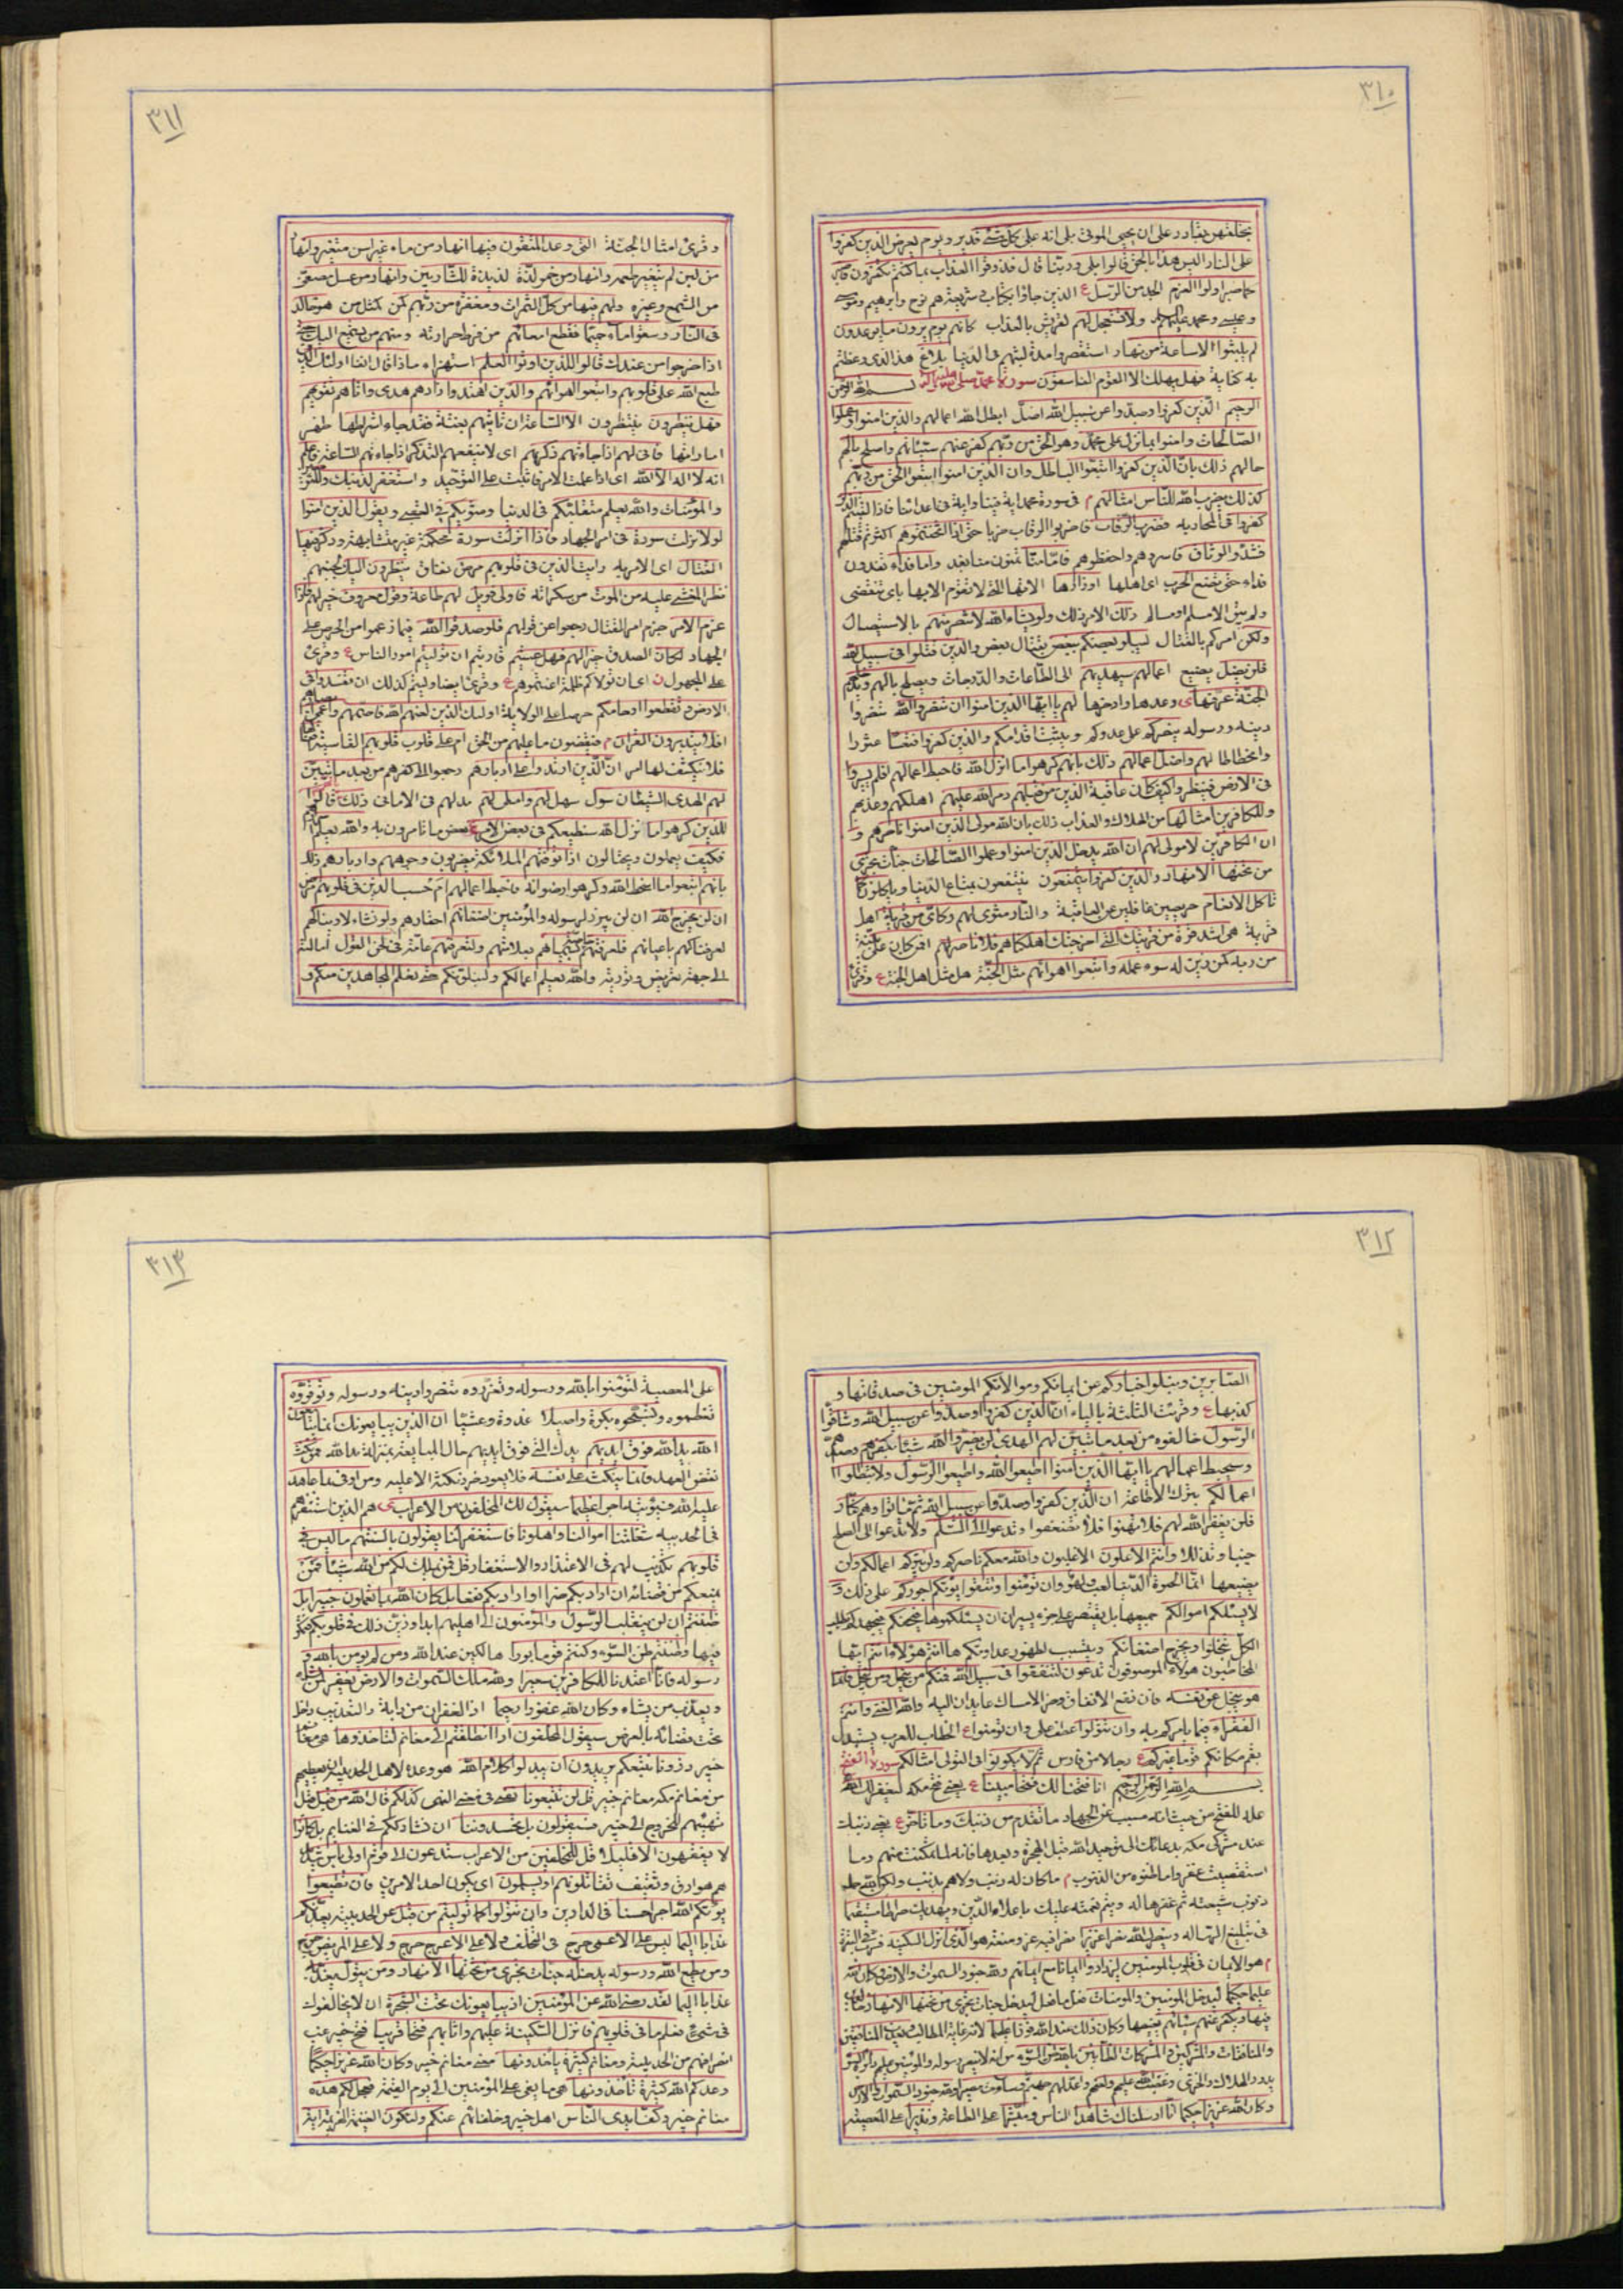 ٣١٠
بخلقهن بقادر على ان يحيى الموتى بلى انه على كل شئ قدير ويوم يعرض الذين كفروا
على النار اليس هذا بالحق قالوا بلى وربنا قال فذوقوا العذاب بما كنتم تكفرون فاصبر
كما صبر اولوا العزم الجد من الرسل ع الذين جاؤا بكتاب وشريعة هم نوح وابرهيم وموسى
وعيسى ومحمد عليهم ولا تستعجل لهم لقريش بالعذاب كانهم يوم يرون ما يوعدون
لم يلبثوا الا ساعة من نهار استقصروا مدة لبثهم فى الدنيا بلاغ هذا الذى وعظتم
به كفاية فهل يهلك الا القوم الفاسقون سورة محمد بسم الله الرحمن
الرحيم الذين كفروا وصدوا عن سبيل الله اضل ابطل الله اعمالهم والذين امنوا وعملوا
الصالحات وامنوا بما نزل على محمد وهو الحق من ربهم كفر عنهم سيئاتهم واصلح بالهم
حالهم ذلك بان الذين كفروا اتبعوا الباطل وان الذين امنوا اتبعوا الحق من ربهم
كذلك يضرب الله للناس امثالهم م فى سورة محمد اية فينا واية فى اعدائنا فاذا لقيتم الذين
كفروا فى المحاربة فضرب الرقاب فاضربوا الرقاب ضربا حتى اذا اثخنتموهم اكثرتم قتلهم
فشدوا الوثاق فاسروهم واحفظوهم فاما منا تمنون منا بعد واما فداء تفدون
فداء حتى تضع الحرب اى اهلها اوزارها الاتها التى لا تقوم الا بها باى تنقضى
ولم يبق الا مسلم او مسالم ذلك الامر ذلك ولو يشاء الله لانتصر منهم بالاستيصال
ولكن امركم بالقتال ليبلو بعضكم ببعض بقتال بعض والذين قتلوا فى سبيل الله
فلن يضل يضيع اعمالهم سيهديهم الى الطاعات والدرجات ويصلح بالهم ويدخلهم
الجنة عرفها ى وعدها وادخرها لهم يا ايها الذين امنوا ان تنصروا الله تنصروا
دينه ورسوله ينصركم على عدوكم ويثبت اقدامكم والذين كفروا فتعسا عثورا
وانحطاطا لهم واضل اعمالهم ذلك بانهم كرهوا ما انزل الله فاحبط اعمالهم افلم يسيروا
فى الارض فينظروا كيف كان عاقبة الذين من قبلهم دمر الله عليهم اهلكهم وعذبهم
وللكافرين امثالها من الهلاك والعذاب ذلك بان الله مولى الذين امنوا ناصرهم و
ان الكافرين لا مولى لهم ان الله يدخل الذين امنوا وعملوا الصالحات جنات تجرى
من تحتها الانهار والذين كفروا يتمتعون ينتفعون بمتاع الدنيا وياكلون كما
تاكل الانعام حريصين غافلين عن العاقبة والنار مثوى لهم وكاين من قرية اهل
قرية هى اشد قوة من قريتك التى اخرجتك اهلكناهم فلا ناصر لهم افمن كان على بينة
من ربه كمن زين له سوء عمله واتبعوا اهواءهم مثل الجنة هل مثل اهل الجنة ع وقرئ
٣١١
وقرئ امثال الجنة التى وعد المتقون فيها انهار من ماء غير اسن متغير وانهار
من لبن لم يتغير طعمه وانهار من خمر لذة لذيذة للشاربين وانهار من عسل مصفى
من الشمع وغيره ولهم فيها من كل الثمرات ومغفرة من ربهم كمن كمثل من هو خالد
فى النار وسقوا ماء حميما فقطع امعاءهم من فرط حرارته ومنهم من يستمع اليك حتى
اذا خرجوا من عندك قالوا للذين اوتوا العلم استهزاء ماذا قال انفا اولئك الذين
طبع الله على قلوبهم واتبعوا اهواءهم والذين اهتدوا زادهم هدى واتاهم تقويهم
فهل ينظرون ينتظرون الا الساعة ان تاتيهم بغتة فقد جاء اشراطها ظهر
اماراتها فانى لهم اذا جاءتهم ذكريهم اى لا ينفعهم التذكر اذا جاءتهم الساعة فاعلم
انه لا اله الا الله اى اذا علمت الامر فاثبت على التوحيد واستغفر لذنبك وللمؤمنين
والمؤمنات والله يعلم متقلبكم فى الدنيا ومثويكم فى العقبى ويقول الذين امنوا
لولا نزلت سورة فى امر الجهاد فاذا انزلت سورة محكمة غير متشابهة وذكر فيها
القتال اى الامر به رايت الذين فى قلوبهم مرض نفاق ينظرون اليك لجبنهم
نظر المغشى عليه من الموت من سكراته فاولى فويل لهم طاعة وقول معروف خير لهم فاذا
عزم الامر جزم امر القتال رجعوا عن قولهم فلو صدقوا الله فيما زعموا من الحرص على
الجهاد لكان الصدق خيرا لهم فهل عسيتم قاربتم ان توليتم امور الناس ع وقرئ
على المجهول ن اى ان تولاكم ظلمة اعنتموهم ع وقرئ ايضا وليتم كذلك ان تفسدوا فى
الارض وتقطعوا ارحامكم حرصا على الولاية اولئك الذين لعنهم الله فاصمهم واعمى ابصارهم
افلا يتدبرون القران م فيقضون ما عليهم من الحق ام على قلوب قلوبهم القاسية اقفالها
فلا ينكشف لها امر ان الذين ارتدوا على ادبارهم رجعوا الى كفرهم من بعد ما تبين
لهم الهدى الشيطان سول سهل لهم واملى لهم مد لهم فى الامانى ذلك بانهم قالوا
للذين كرهوا ما نزل الله سنطيعكم فى بعض الامر ع بعض ما تامرون به والله يعلم اسرارهم
فكيف يعملون ويحتالون اذا توفتهم الملائكة يضربون وجوههم وادبارهم ذلك
بانهم اتبعوا ما اسخط الله وكرهوا رضوانه فاحبط اعمالهم ام حسب الذين فى قلوبهم مرض
ان لن يخرج الله ان لن يبرز لرسوله والمؤمنين اضغانهم احقادهم ولو نشاء لاريناكهم
لعرفناكهم باعيانهم فلعرفتهم بسيماهم بعلامتهم ولتعرفنهم عامة فى لحن القول امالته
الى جهة تعريض وتورية والله يعلم اعمالكم ولنبلونكم حتى نعلم المجاهدين منكم و
٣١٢
الصابرين ونبلوا اخباركم عن ايمانكم وموالاتكم المؤمنين فى صدقها و
كذبها ع وقرئت الثلثة بالياء ان الذين كفروا وصدوا عن سبيل الله وشاقوا
الرسول خالفوه من بعد ما تبين لهم الهدى لن يضروا الله شيئا بكفرهم وصدهم
وسيحبط اعمالهم يا ايها الذين امنوا اطيعوا الله واطيعوا الرسول ولا تبطلوا
اعمالكم بترك الاطاعة ان الذين كفروا وصدوا عن سبيل الله ثم ماتوا وهم كفار
فلن يغفر الله لهم فلا تهنوا فلا تضعفوا وتدعوا الى السلم ولا تدعوا الى الصلح
جبنا وتذللا وانتم الاعلون الاغلبون والله معكم ناصركم ولن يتركم اعمالكم ولن
يضيعها انما الحيوة الدنيا لعب ولهو وان تؤمنوا وتتقوا يؤتكم اجوركم على ذلك و
لا يسئلكم اموالكم جميعها بل يقتصر على جزء يسير ان يسئلكموها فيحفكم فيجهدكم بطلب
الكل تبخلوا ويخرج اضغانكم ويتسبب لظهور عداوتكم ها انتم هؤلاء انتم ايها
المخاطبون هؤلاء الموصوفون تدعون لتنفقوا فى سبيل الله فمنكم من يبخل ومن يبخل فانما
هو يبخل عن نفسه فان نفع الانفاق وضر الامساك عايدان اليه والله الغنى وانتم
الفقراء فيما يامركم به وان تتولوا عطف على وان تؤمنوا ع الخطاب للعرب يستبدل
يقم مكانكم قوما غيركم ع رجالا من فارس ثم لا يكونوا فى التولى امثالكم سورة الفتح
بسم الله الرحمن الرحيم انا فتحنا لك فتحا مبينا ع يعنى فتح مكه ليغفر لك الله
علة للفتح من حيث انه مسبب عن الجهاد ما تقدم من ذنبك وما تاخر ع يعنى ذنبك
عند مشركى مكة بدعائك الى توحيد الله قبل الهجرة وبعدها فانه لما مكنت منهم وما
استقصيت غفروا ما ظنوه من الذنوب م ما كان له ذنب ولا هم بذنب ولكن الله حمله
ذنوب شيعته ثم غفرها له ويتم نعمته عليك باعلاء الدين ويهديك صراطا مستقيما
فى تبليغ الرسالة وينصرك الله نصرا عزيزا نصرا فيه عز ومنعة هو الذى انزل السكينة
م هو الايمان فى قلوب المؤمنين ليزدادوا ايمانا مع ايمانهم ولله جنود السموات والارض وكان الله
عليما حكيما ليدخل المؤمنين والمؤمنات فعل ما فعل ليدخل جنات تجرى من تحتها الانهار خالدين
فيها ويكفر عنهم سيئاتهم يغطيها وكان ذلك عند الله فوزا عظيما لانه غاية المطالب ويعذب المنافقين
والمنافقات والمشركين والمشركات الظانين بالله ظن السوء من انه لا ينصر رسوله والمؤمنين عليهم دائرة السوء
يدور الهلاك والخزى وغضب الله عليهم ولعنهم واعد لهم جهنم وساءت مصيرا ولله جنود السموات والارض
وكان الله عزيزا حكيما انا ارسلناك شاهدا الناس ومبشرا على الطاعة ونذيرا على المعصية
٣١٣
على المعصية لتؤمنوا بالله ورسوله وتعزروه تنصروا دينه ورسوله وتوقروه
تعظموه وتسبحوه بكرة واصيلا غدوة وعشيا ان الذين يبايعونك انما يبايعون
الله يد الله فوق ايديهم يدك التى فوق ايديهم حال المبايعة بمنزلة يد الله فمن نكث
نقض العهد فانما ينكث على نفسه فلا يعود ضرر نكثه الا عليه ومن اوفى بما عاهد
عليه الله فسيؤتيه اجرا عظيما سيقول لك المخلفون من الاعراب ى هم الذين استنفرهم
فى الحديبيه شغلتنا اموالنا واهلونا فاستغفر لنا يقولون بالسنتهم ما ليس فى
قلوبهم تكذيب لهم فى الاعتذار والاستغفار قل فمن يملك لكم من الله شيئا فمن
يمنعكم من قضائه ان اراد بكم ضرا او اراد بكم نفعا بل كان الله بما تعملون خبيرا بل
ظننتم ان لن ينقلب الرسول والمؤمنون الى اهليهم ابدا وزين ذلك فى قلوبكم فتمكن
فيها وظننتم ظن السوء وكنتم قوما بورا هالكين عند الله ومن لم يؤمن بالله و
رسوله فانا اعتدنا للكافرين سعيرا ولله ملك السموات والارض يغفر لمن يشاء
ويعذب من يشاء وكان الله غفورا رحيما اذ الغفران من دابه والتعذيب داخل
تحت قضائه بالعرض سيقول المخلفون اذا انطلقتم الى مغانم لتاخذوها هى مغانم
خيبر ذرونا نتبعكم يريدون ان يبدلوا كلام الله هو وعده لاهل الحديبية ان يعطيهم
من مغانم مكه مغانم خيبر قل لن تتبعونا نفى فى معنى النهى كذلكم قال الله من قبل قبل
تهيئهم للخروج الى خيبر فسيقولون بل تحسدوننا ان نشارككم فى الغنايم بل كانوا
لا يفقهون الا قليلا قل للمخلفين من الاعراب ستدعون الى قوم اولى باس شديد
هم هوازن وثقيف تقاتلونهم او يسلمون اى يكون احد الامرين فان تطيعوا
يؤتكم الله اجرا حسنا فى الدارين وان تتولوا كما توليتم من قبل عن الحديبية يعذبكم
عذابا اليما ليس على الاعمى حرج فى التخلف ولا على الاعرج حرج ولا على المريض حرج
ومن يطع الله ورسوله يدخله جنات تجرى من تحتها الانهار ومن يتول يعذبه
عذابا اليما لقد رضى الله عن المؤمنين اذ يبايعونك تحت الشجرة ان لا يخالفوك
فى شئ فعلم ما فى قلوبهم فانزل السكينة عليهم واثابهم فتحا قريبا فتح خيبر غب
انصرافهم من الحديبية ومغانم كثيرة ياخذونها يعنى مغانم خيبر وكان الله عزيزا حكيما
وعدكم الله كثيرة تاخذونها هى ما يفئ على المؤمنين الى يوم القيمة فعجل لكم هذه
مغانم خيبر وكف ايدى الناس اهل خيبر وحلفائهم عنكم ولتكون الغنيمة للمؤمنين اية